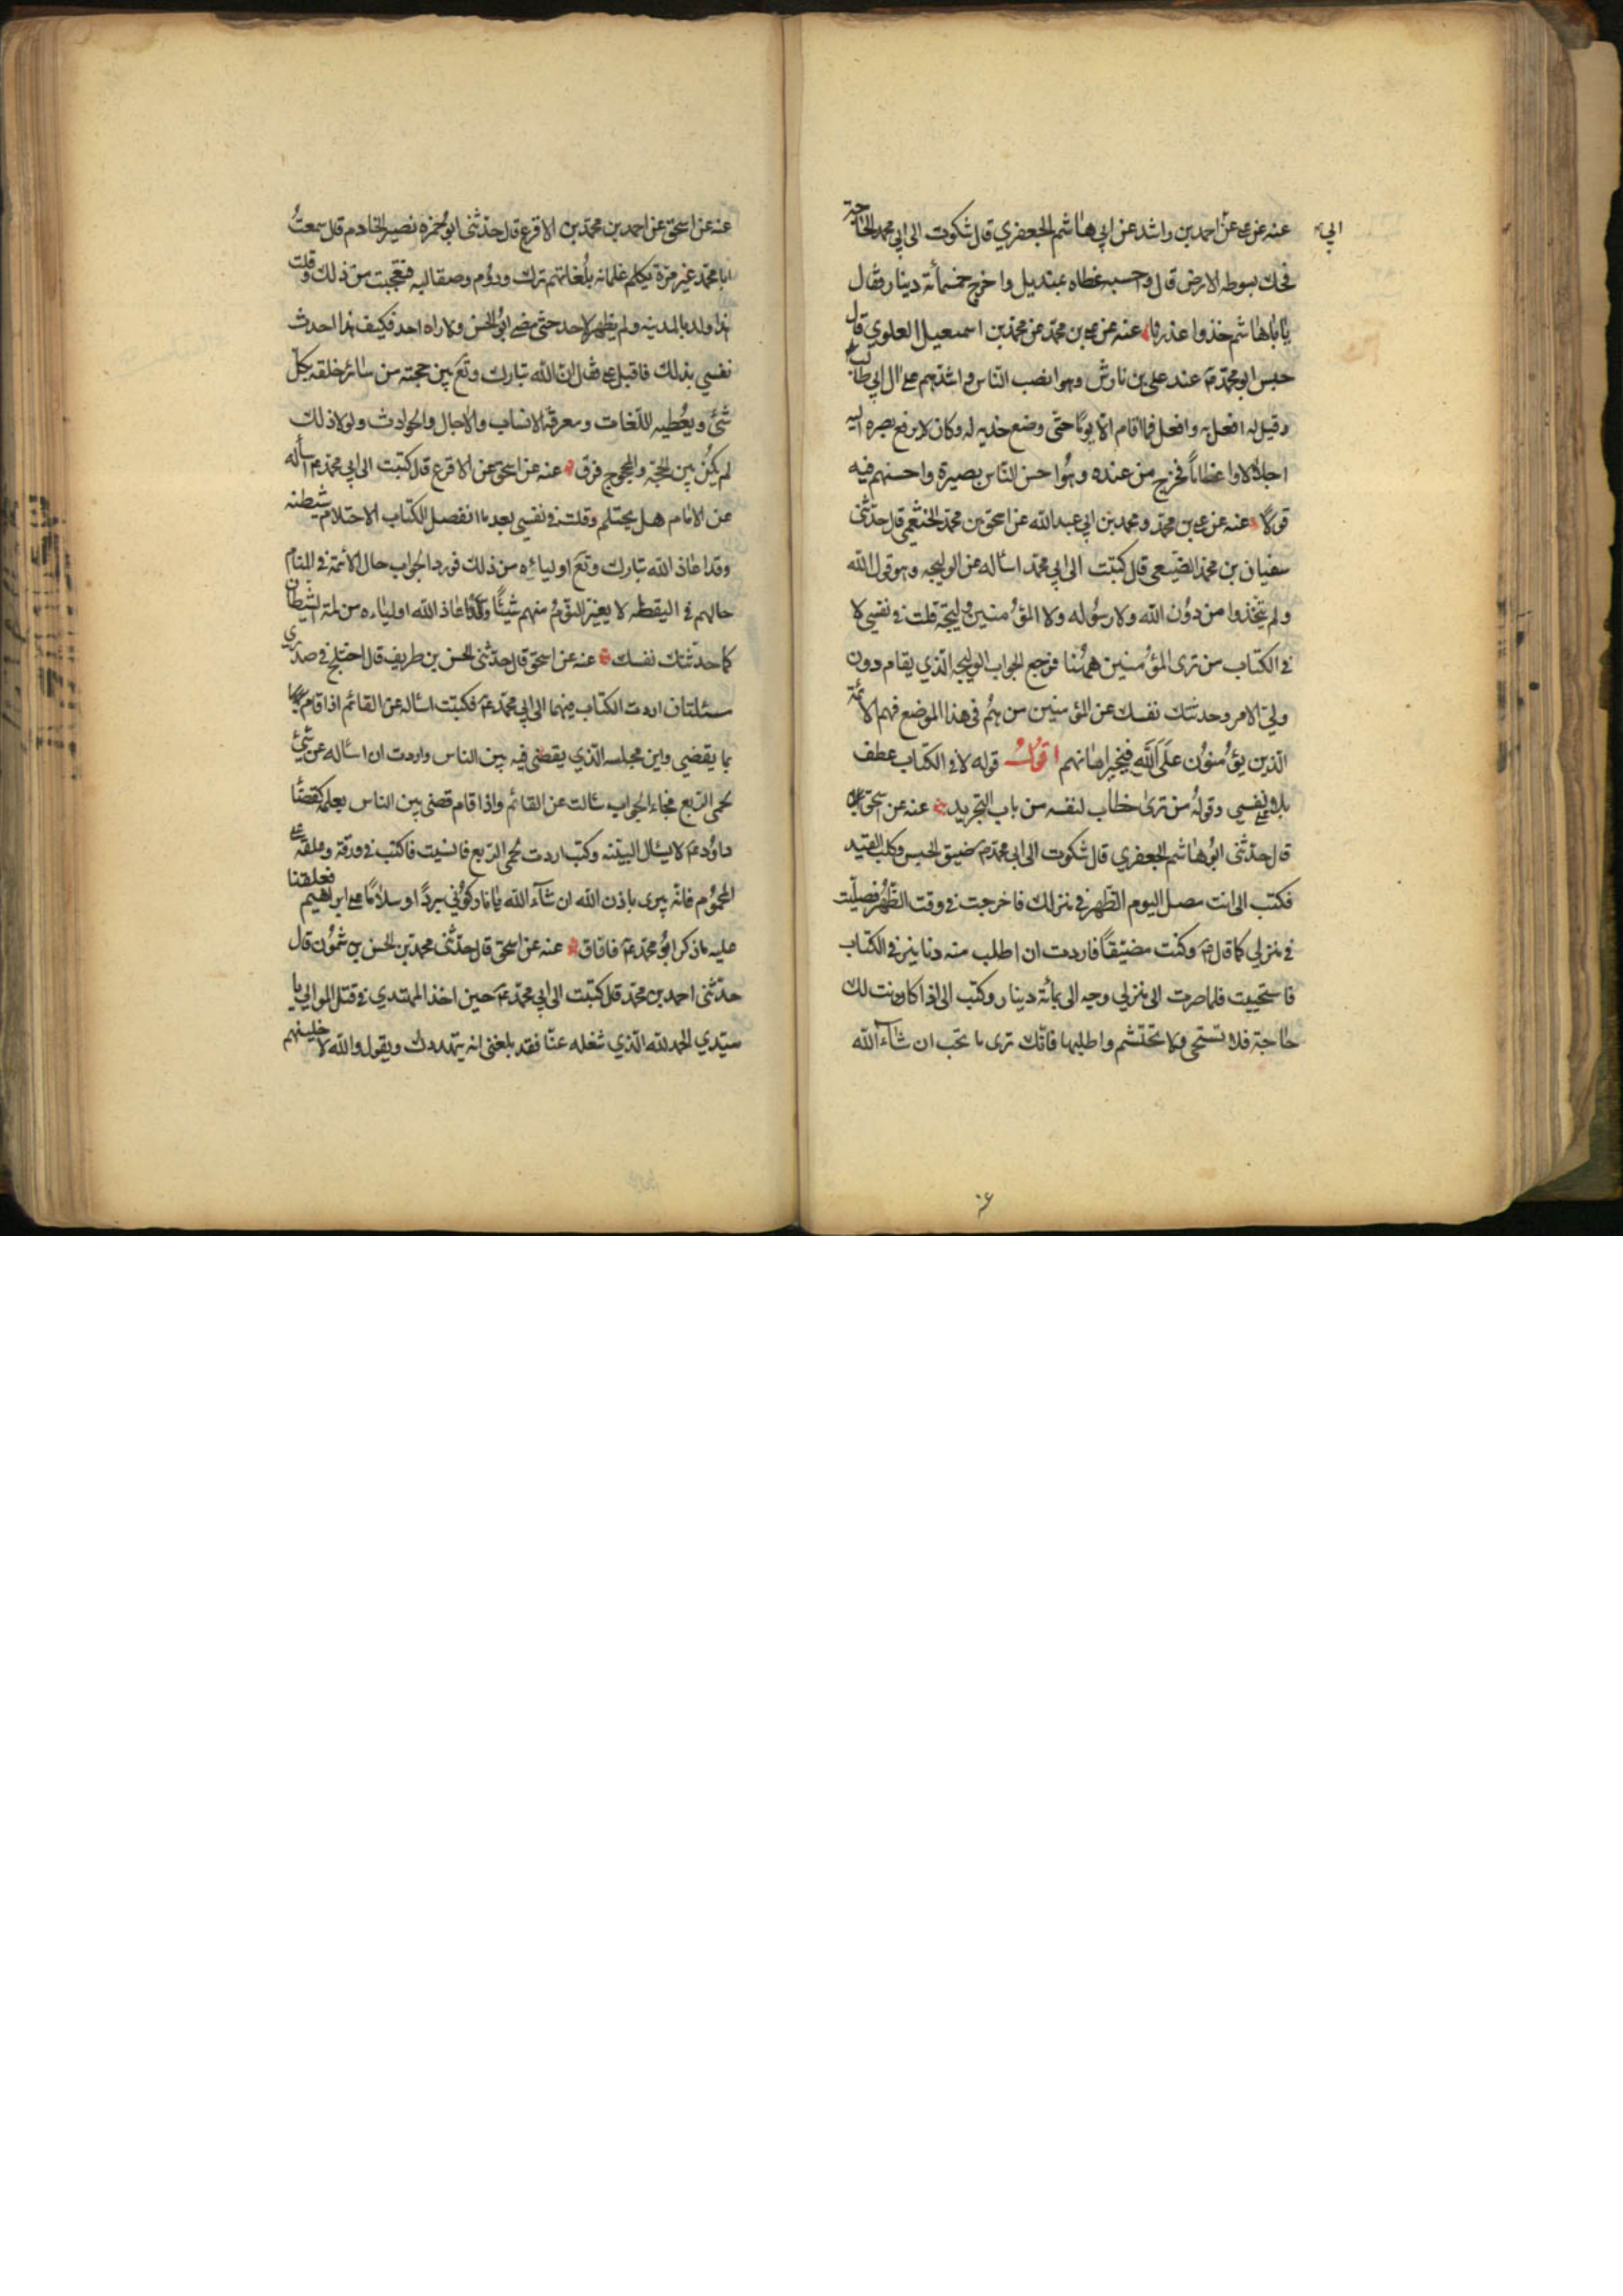 عنه عن على عن احمد بن راشد عن ابي هاشم الجعفري قال شكوت الى ابي محمد الحاجة
فحك بسوطه الارض قال واحسبه غطاه بمنديل واخرج خمسمأة دينار وقال
يا باهاشم خذوا عذرنا عنه عن على بن محمد عن محمد بن اسمعيل العلوي قال
حبس ابو محمد ع عند علي بن نارش وهو انصب الناس واشدهم على ال ابي طالب
وقيل له افعل به وافعل فما اقام الا يوما حتى وضع خديه له وكان لا يرفع بصره اليه
اجلالا واعظاما فخرج من عنده وهو احسن الناس بصيرة واحسنهم فيه
قولا عنه عن على بن محمد ومحمد بن ابي عبدالله عن اسحق بن محمد النخعي قال حدثنى
سفيان بن محمد الضبعي قال كتبت الى ابي محمد اسأله عن الوليجه وهو قول الله
ولم يتخذوا من دون الله ولا رسوله ولا المؤمنين وليجة قلت في نفسي لا
في الكتاب من ترى المؤمنين ههنا فرجع الجواب الوليجه الذي يقام دون
ولي الامر وحدثتك نفسك عن المؤمنين من هم في هذا الموضع فهم الائمة
الذين يؤمنون على الله فيجيز امانهم اقول قوله لا في الكتاب عطف
على نفسي وقوله من ترى خطاب لنفسه من باب التجريد عنه عن اسحق
قال حدثنى ابو هاشم الجعفري قال شكوت الى ابي محمد ع ضيق الحبس وكلب القيد
فكتب الى انت مصل اليوم الظهر في منزلك فاخرجت في وقت الظهر فصليت
في منزلي كما قال ع وكنت مضيقا فاردت ان اطلب منه دنانير في الكتاب
فاستحييت فلما صرت الى منزلي وجه الى بمأة دينار وكتب الى اذا كانت لك
حاجة فلا تستحي ولا تحتشم واطلبها فانك ترى ما تحب ان شاء الله
عنه عن اسحق عن احمد بن محمد بن الاقرع قال حدثنى ابو حمزه نصير الخادم قال سمعت
ابا محمد غير مرة يكلم غلمانه بلغاتهم ترك وروم وصقالبه فتعجبت من ذلك وقلت
هذا ولد بالمدينه ولم يظهر لاحد حتى مضى ابو الحسن ولا راه احد فكيف هذا احدث
نفسي بذلك فاقبل على فقال ان الله تبارك وتع بين حجته من سائر خلقه بكل
شئ ويعطيه اللغات ومعرفة الانساب والاجال والحوادث ولولا ذلك
لم يكن بين الحجة والمحجوج فرق عنه عن اسحق عن الاقرع قال كتبت الى ابي محمد ع اسأله
عن الامام هل يحتلم وقلت في نفسي بعد ما انفصل الكتاب الاحتلام شيطنه
وقد اعاذ الله تبارك وتع اولياءه من ذلك فورد الجواب حال الائمة في المنام
حالهم في اليقظه لا يغير النوم منهم شيئا وقد اعاذ الله اولياءه من لمة الشيطان
كما حدثتك نفسك عنه عن اسحق قال حدثنى الحسن بن طريف قال اختلج في صدري
مسئلتان اردت الكتاب فيهما الى ابي محمد ع فكتبت اسأله عن القائم اذا قام
بما يقضي واين مجلسه الذي يقضى فيه بين الناس واردت ان اسأله عن شئ
لحمى الربع فجاء الجواب سئالت عن القائم واذا قام قضى بين الناس بعلمه كقضا
داود ع لا يسال البينه وكنت اردت لحمى الربع فانسيت فاكتب في ورقة وعلقه على
المحموم فانه يبرى باذن الله ان شاء الله يا نار كوني بردا وسلاما على ابراهيم فعلقنا
عليه ما ذكر ابو محمد ع فافاق عنه عن اسحق قال حدثنى محمد بن الحسن بن شمون قال
حدثنى احمد بن محمد قال كتبت الى ابي محمد ع حين اخذ المهتدي في قتل الموالي يا
سيدي الحمد لله الذي شغله عنا فقد بلغنى انه يتهددك ويقول والله لاخلينهم